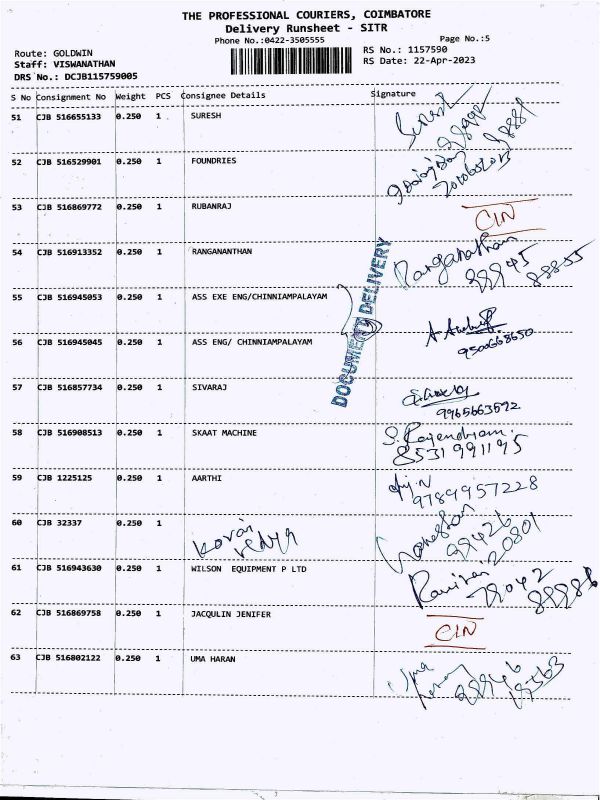 THE PROFESSIONAL COURIERS, COIMBATORE
Delivery Runsheet - SITR
Phone No.:0422-3505555 Page No.:5
Route: GOLDWIN RS No.: 1157590
Staff: VISWANATHAN RS Date: 22-Apr-2023
DRS No.: DCJB115759005
S No Consignment No Weight PCS Consignee Details Signature
51 CJB 516655133 0.250 1 SURESH Suresh
52 CJB 516529901 0.250 1 FOUNDRIES
53 CJB 516869772 0.250 1 RUBANRAJ CIN
54 CJB 516913352 0.250 1 RANGANANTHAN Ranganathan
99945 88855
55 CJB 516945053 0.250 1 ASS EXE ENG/CHINNIAMPALAYAM
DOCUMENT DELIVERY
56 CJB 516945045 0.250 1 ASS ENG/ CHINNIAMPALAYAM
9500668650
57 CJB 516857734 0.250 1 SIVARAJ
9965663592
58 CJB 516908513 0.250 1 SKAAT MACHINE S. Rajendran
8531991195
59 CJB 1225125 0.250 1 AARTHI
9789957228
60 CJB 32337 0.250 1
61 CJB 516943630 0.250 1 WILSON EQUIPMENT P LTD
62 CJB 516869758 0.250 1 JACQULIN JENIFER CIN
63 CJB 516802122 0.250 1 UMA HARAN Uma